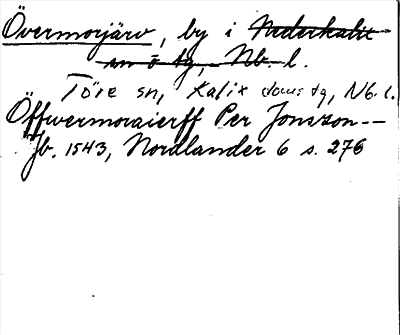 Övermorjärv, by i Nederkalix
sn o tg, Nb. l.
Töre sn, Kalix doms tg, Nb. l.
Öffwermoraierff Per Jonszon--
Jb. 1543, Nordlander 6 s. 276